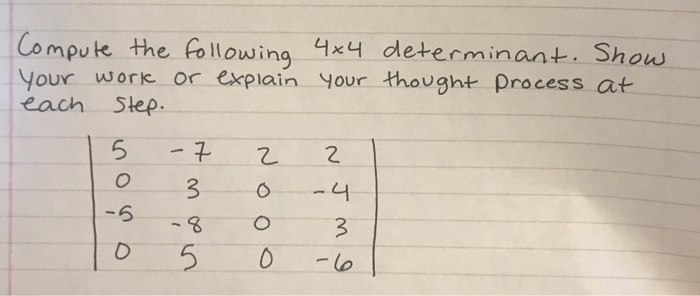 Compute the following 4x4 determinant. Show
your work or explain your thought process at
each step.
5 -7 2 2
0 3 0 -4
-5 -8 0 3
0 5 0 -6